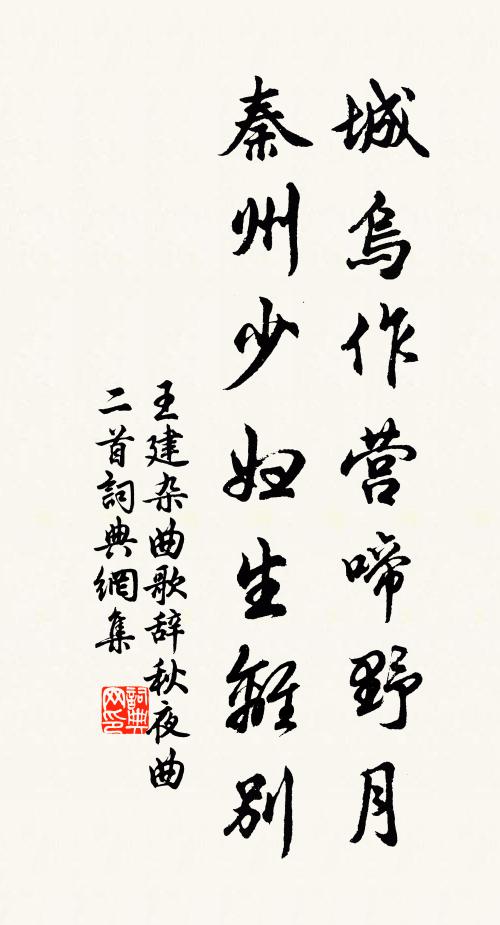 城烏作营啼野月
秦州少妇生離别
王建杂曲歌辞秋夜曲
二首詞典網集
詞典
网印